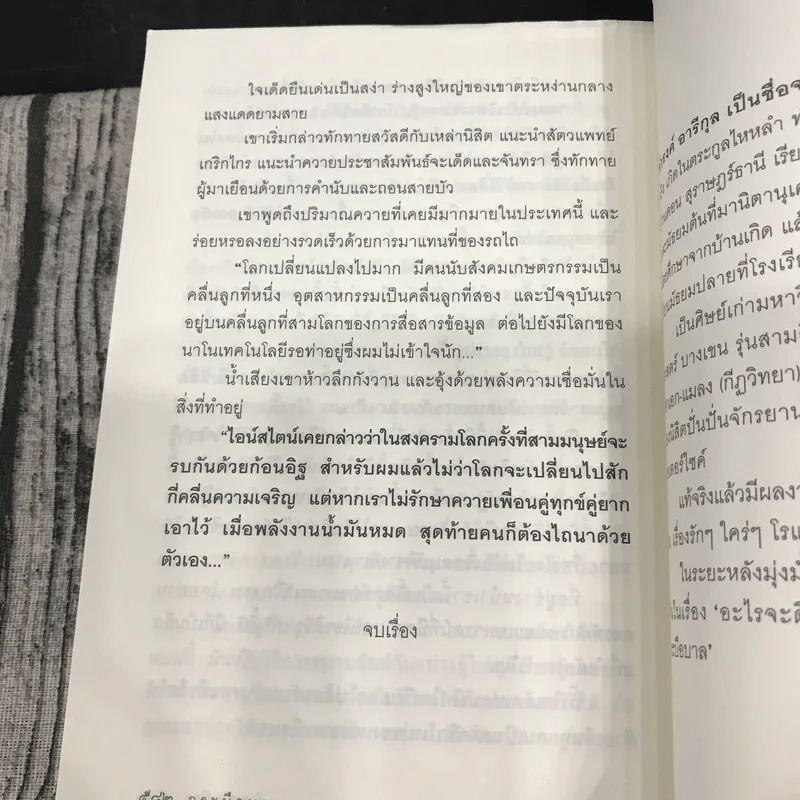 ใจเด็ดยืนเด่นเป็นสง่า ร่างสูงใหญ่ของเขาตระหง่านกลาง
แสงแดดยามสาย
เขาเริ่มกล่าวทักทายสวัสดีกับเหล่านิสิต แนะนำสัตวแพทย์
เกริกไกร แนะนำควายประชาสัมพันธ์จะเด็ดและจันทรา ซึ่งทักทาย
ผู้มาเยือนด้วยการคำนับและถอนสายบัว
เขาพูดถึงปริมาณควายที่เคยมีมากมายในประเทศนี้ และ
ร่อยหรอลงอย่างรวดเร็วด้วยการมาแทนที่ของรถไถ
“โลกเปลี่ยนแปลงไปมาก มีคนนับสังคมเกษตรกรรมเป็น
คลื่นลูกที่หนึ่ง อุตสาหกรรมเป็นคลื่นลูกที่สอง และปัจจุบันเรา
อยู่บนคลื่นลูกที่สามโลกของการสื่อสารข้อมูล ต่อไปยังมีโลกของ
นาโนเทคโนโลยีรอท่าอยู่ซึ่งผมไม่เข้าใจนัก...”
น้ำเสียงเขาห้าวลึกกังวาน และอุ้งด้วยพลังความเชื่อมั่นใน
สิ่งที่ทำอยู่
“ไอน์สไตน์เคยกล่าวว่าในสงครามโลกครั้งที่สามมนุษย์จะ
รบกันด้วยก้อนอิฐ สำหรับผมแล้วไม่ว่าโลกจะเปลี่ยนไปสัก
กี่คลื่นความเจริญ แต่หากเราไม่รักษาควายเพื่อนคู่ทุกข์คู่ยาก
เอาไว้ เมื่อพลังงานน้ำมันหมด สุดท้ายคนก็ต้องไถนาด้วย
ตัวเอง...”
จบเรื่อง
อารีกุล เป็นชื่อจ
เกิดในตระกูลไหหลำ
สุราษฎร์ธานี เรีย
มัธยมต้นที่มานิตานุเค
ศึกษาจากบ้านเกิด แล้
มัธยมปลายที่โรงเรีย
เป็นศิษย์เก่ามหาวิ
บางเขน รุ่นสาม
เอก-แมลง (กีฏวิทยา)
นิสิตปั่นปั่นจักรยาน
เตอร์ไซค์
แท้จริงแล้วมีผลงา
เรื่องรักๆ ใคร่ๆ โรแ
ในระยะหลังมุ่งมั
ในเรื่อง ‘อะไรจะดิ